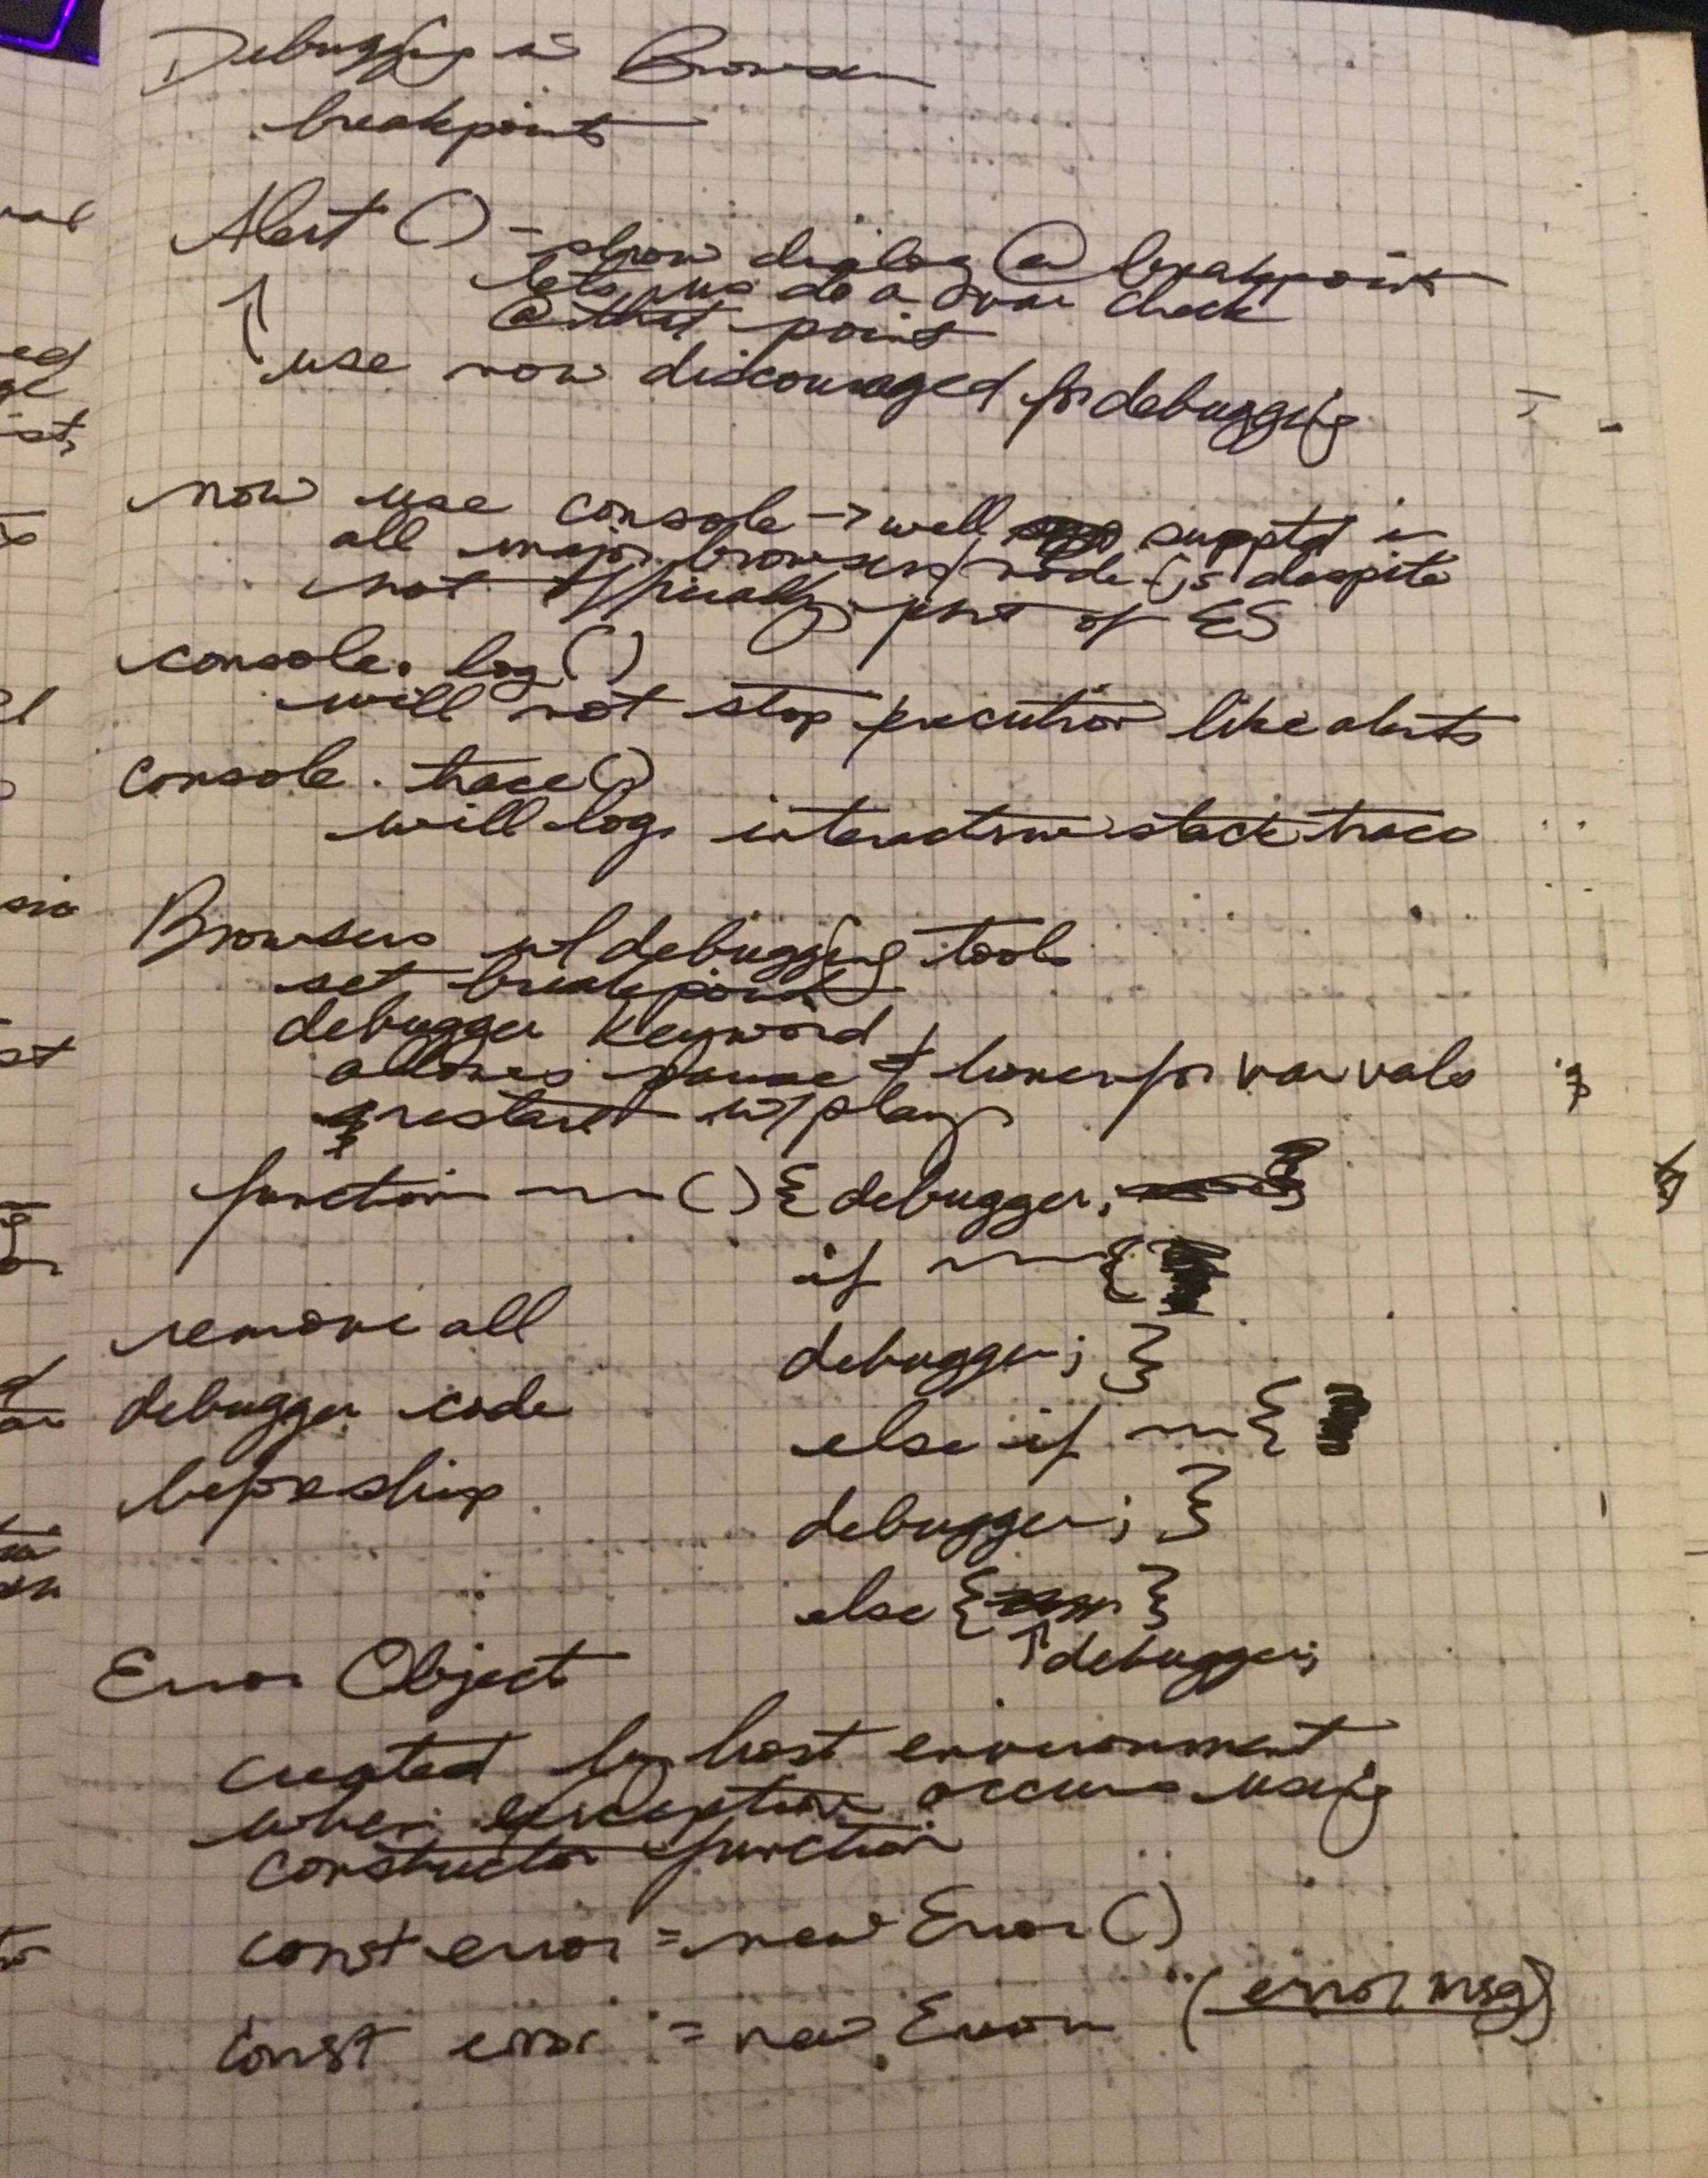 Debugging in Browser
breakpoints
Alert () - show dialog @ breakpoint
lets us do a var check
@ that point
↑ use now discouraged for debugging
now use console -> well supptd in
all major browsers/node.js despite
not officially part of ES
console.log()
will not stop execution like alerts
console.trace()
will log interactive stack trace
Browsers w/ debugging tools
set breakpoint
debugger keyword
allows pause & hover for var vals
& restart w/ play
function ~~ () { debugger;
if ~~ {
remove all
debugger; }
debugger code
else if ~~ {
before ship
debugger; }
else { }
↑ debugger;
Error Object
created by host environment
when exception occurs using
constructor function
const error = new Error()
const error = new Error (error msg)